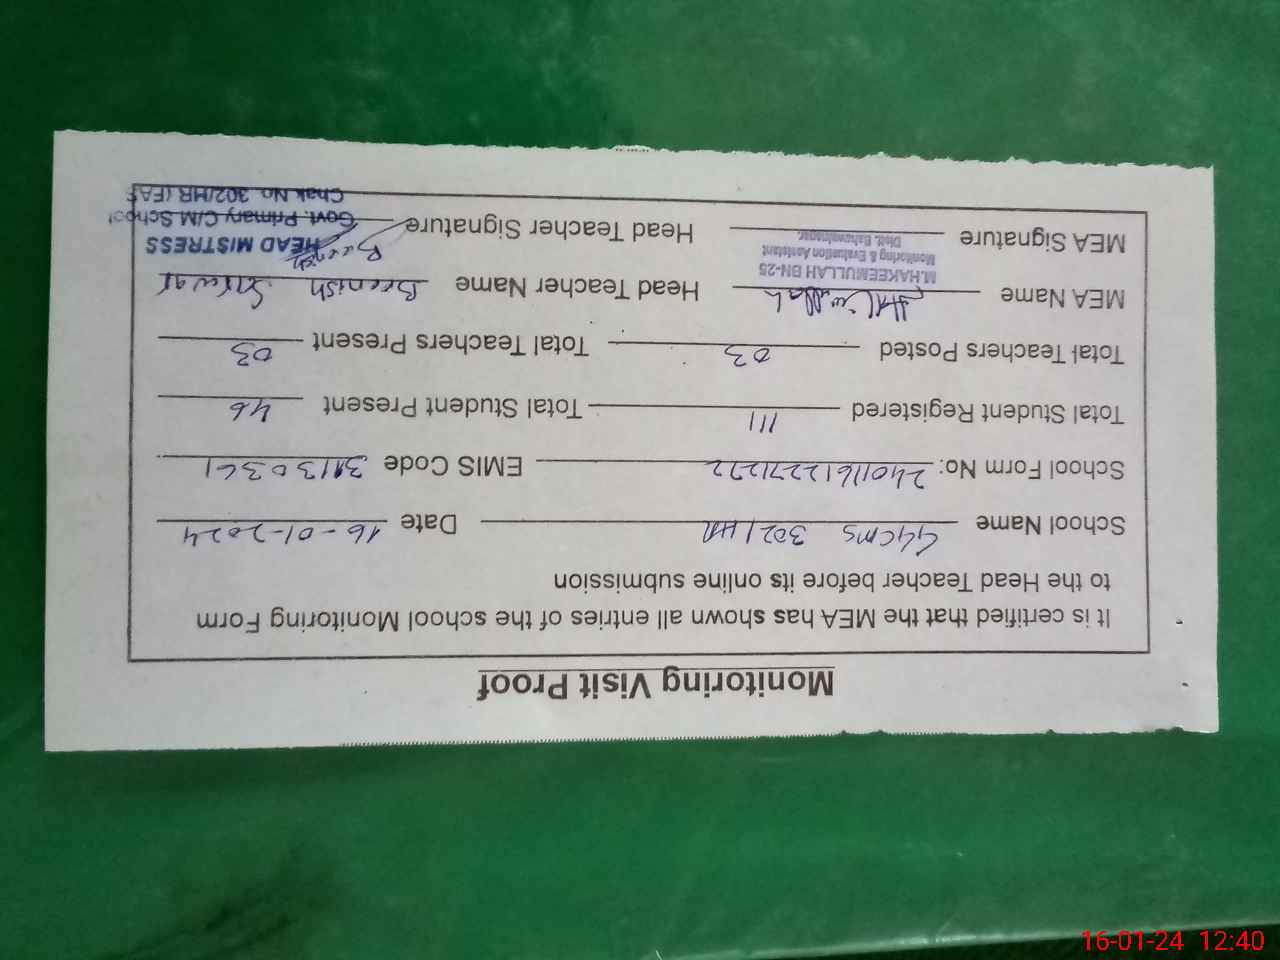 Monitoring Visit Proof
It is certified that the MEA has shown all entries of the school Monitoring Form
to the Head Teacher before its online submission
School Name GGCMS 302/HR Date 16-01-2024
School Form No: 24011612271272 EMIS Code 31130361
Total Student Registered 111 Total Student Present 46
Total Teachers Posted 03 Total Teachers Present 03
MEA Name Head Teacher Name Beenish Sarwar
M.HAKEEMULLAH BN-25
Monitoring & Evaluation Assistant
Distt. Bahawalnagar.
MEA Signature Head Teacher Signature Beenish
HEAD MISTRESS
Govt. Primary C/M School
Chak No. 302/HR (FA
16-01-24 12:40